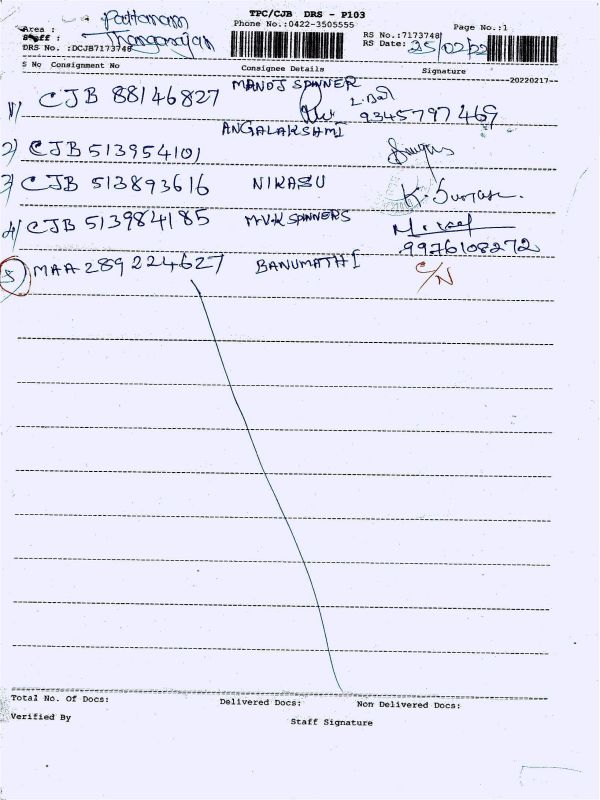 TPC/CJB DRS - P103
Phone No.:0422-3505555
Page No.:1
Area : Pattanam
Staff : Thangarajan
DRS No. :DCJB7173748
RS No.:7173748
RS Date: 25/02/22
S No Consignment No Consignee Details Signature
--20220217--
1) CJB 88146827 MANOJ SPINNER
9345797469
2) CJB 513954101 ANGALAKSHMI
3) CJB 513893616 NIKASU K. Suresh.
4) CJB 513984185 M.V.K SPINNERS
9976108272
5) MAA 289224627 BANUMATHI C/N
Total No. Of Docs: Delivered Docs: Non Delivered Docs:
Verified By Staff Signature